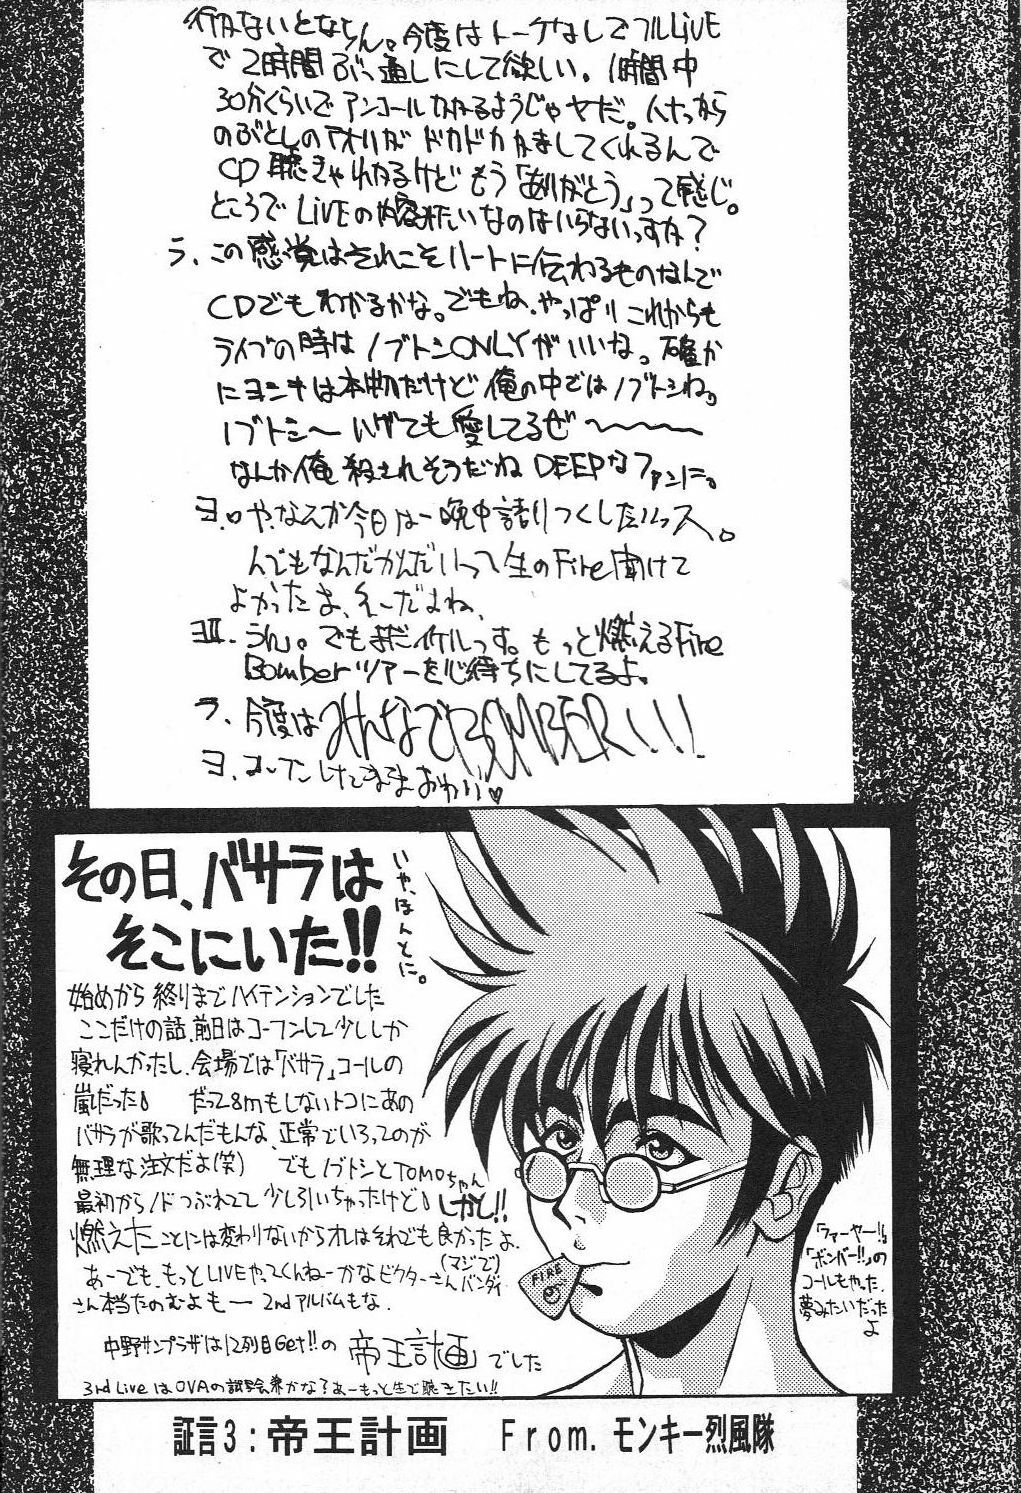 行かないとならん。今度はトークなしでフルLiVE
で2時間ぶっ通しにして欲しい。1時間中
30分くらいでアンコールかかるようじゃヤだ。
のぶとしのアオリがドカドカかましてくれるんで
CD聴きゃわかるけどもう「ありがとう」って感じ。
ところでLiVEの内容みたいなのはいらないっすか?
ラ. この感覚はそれこそハートに伝わるものなんで
CDでもわかるかな。でもね、やっぱりこれからも
ライブの時はノブトシONLYがいいな。確か
にヨシキは本物だけど俺の中ではノブトシね。
ノブトシ〜ハゲても愛してるぜ〜〜〜
なんか俺殺されそうだねDEEPなファンに。
ヨ. 今日は一晩中語りつくしたいっス。
んでもなんだかんだいって生のFire聞けて
よかったよ、えーだよね、
ヨII. うん。でもまだイケルっす。もっと燃えるFire
Bomberツアーを心待ちにしてるよ。
ラ. 今度はみんなでBOMBER!!!
ヨ. コーフンしたままおわり♥
その日、バサラは
そこにいた!!
いや、ほんとに。
始めから終りまでハイテンションでした
ここだけの話、前日はコーフンして少ししか
寝れんかったし、会場では「バサラ」コールの
嵐だった! だって8mもしないトコにあの
バサラが歌ってんだもんな、正常でいろってのが
無理な注文だよ(笑) でもノブトシとTOMOちゃん
最初からノドつぶれてて少し引いちゃったけど! しかし!!
燃えたことには変わりないからオレはそれでも良かったよ.
あーでも、もっとLIVEやってくんねーかなビクターさん(マジで)バンダイ
さん本当たのむよもー 2ndアルバムもな.
中野サンプラザは12列目Get!!の 帝王計画 でした
3rd LiveはOVAの試写会兼かな?あーもっと生で聴きたい!!
FIRE
「ファーヤー!!」
「ボンバー!!」の
コールもやった.
夢みたいだった
よ
証言3:帝王計画 From.モンキー烈風隊